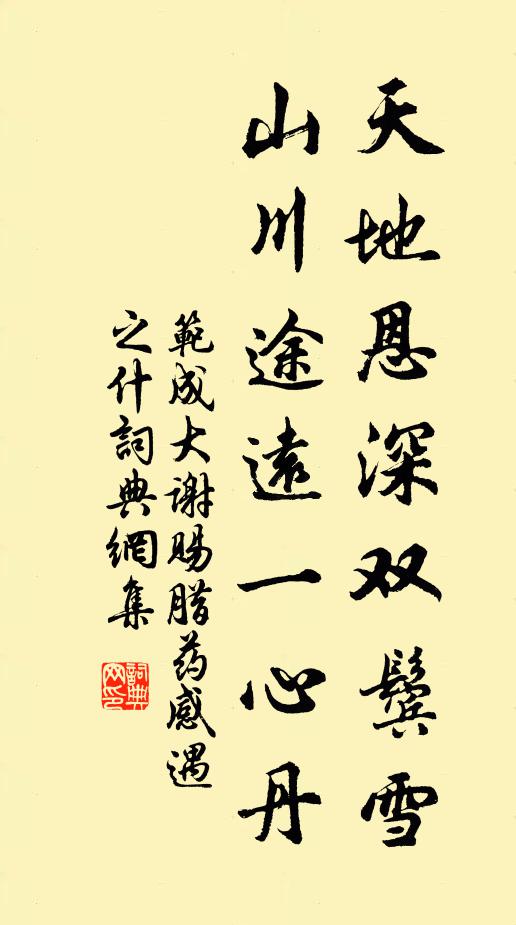 天地恩深双鬓雪
山川途遠一心丹
範成大谢赐腊药感遇
之什詞典網集
詞典网印